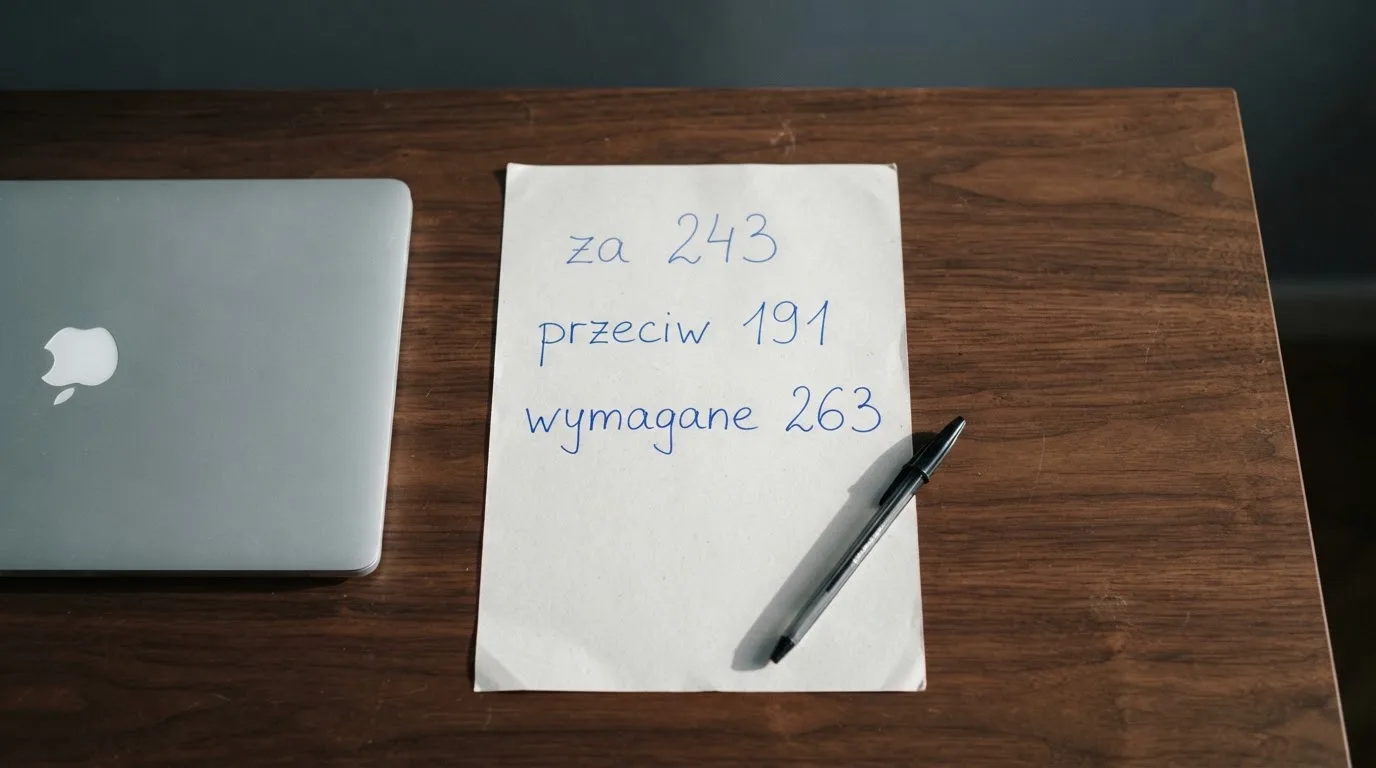 za 243
przeciw 191
wymagane 263